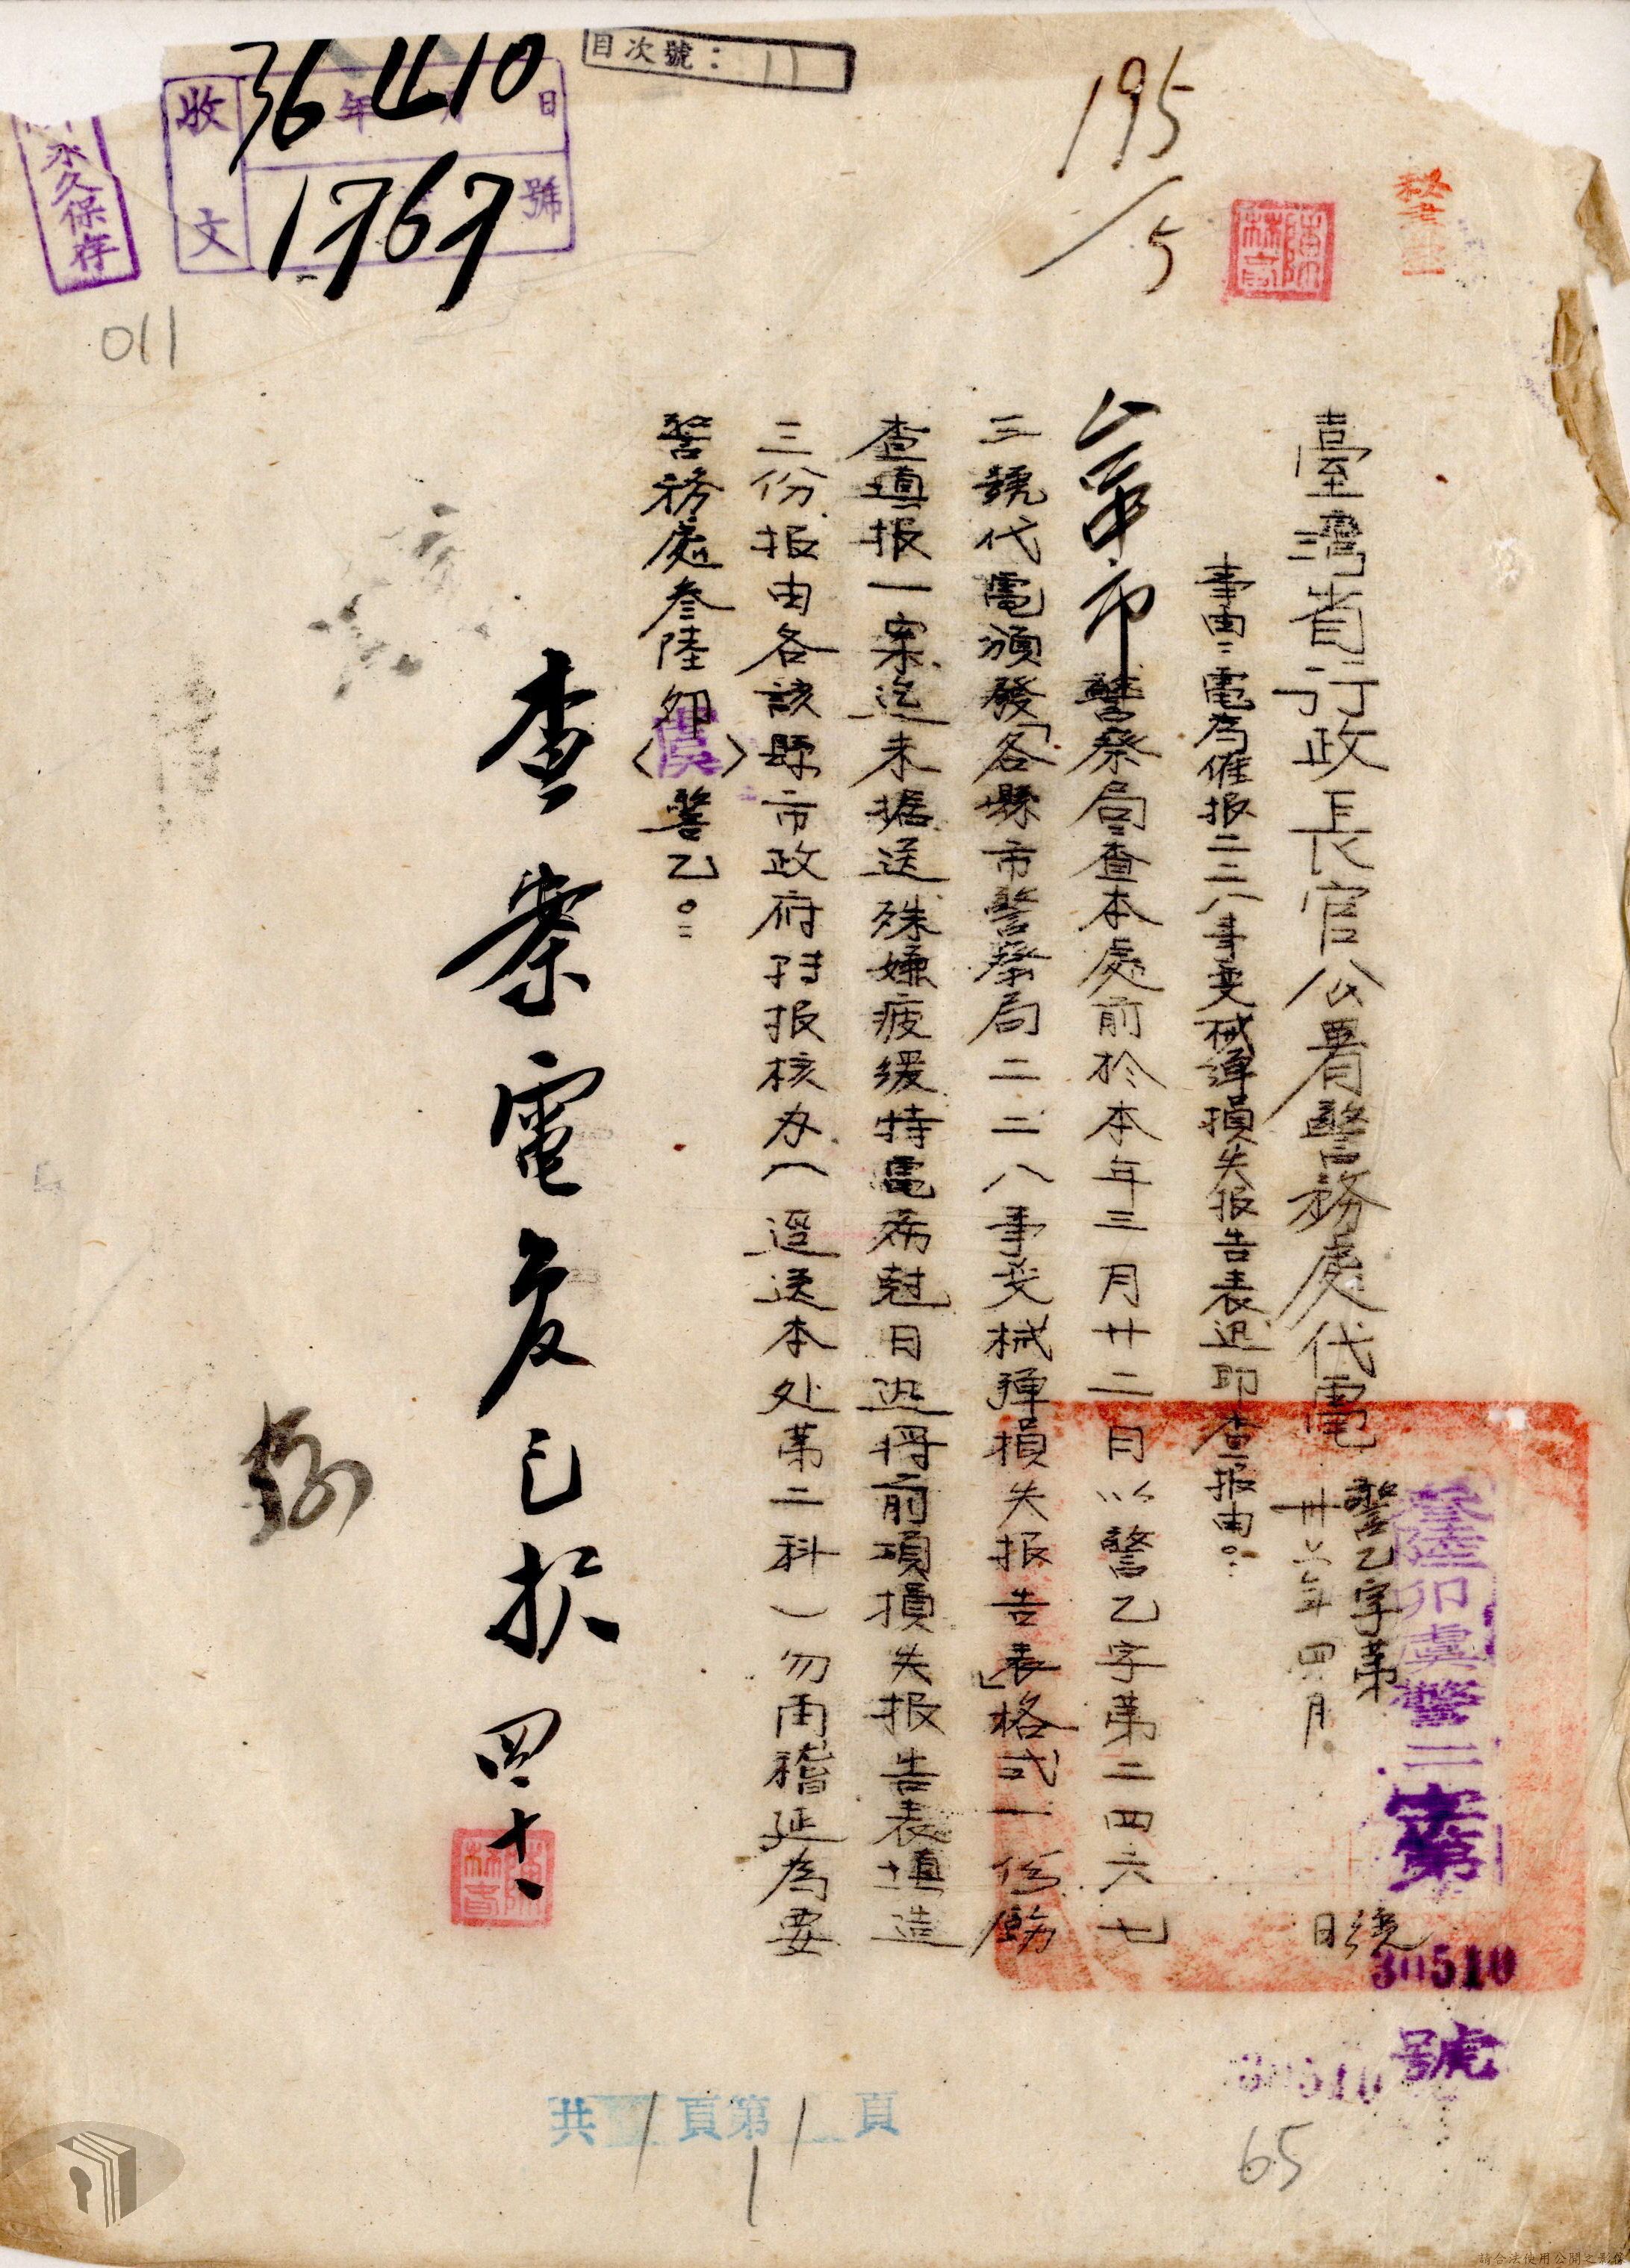 目次號：11
收文 36年4月10日
1767號
永久保存
011
195/5
臺灣省行政長官公署警務處代電
警乙字第
卅六年四月 日
叁陸卯虞警二字第
30510
號
事由：電為催报二二八事变械彈損失报告表迅即查报由。
台中市警察局查本處前於本年三月廿二日以警乙字第二四六七
三號代電頒發「各縣市警察局二二八事变械彈損失报告表」格式一份飭
查填报一案迄未据送殊嫌疲緩特電希尅日迅将前項損失报告表填造
三份报由各該縣市政府轉报核办（逕送本处第二科）勿再稽延為要
警務處叁陸卯〈虞〉警乙。
查案電复已报 四十
共1頁第1頁
1
30510
65
請合法使用公開之影像